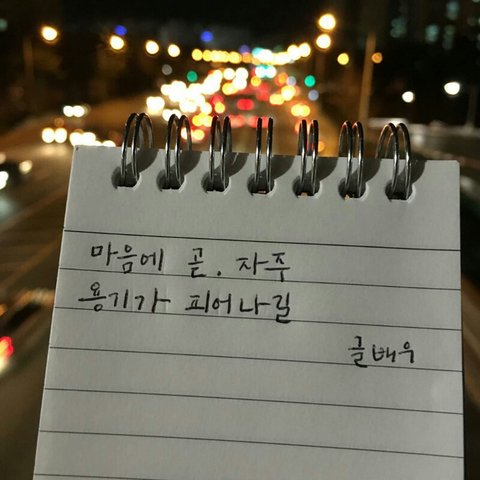 마음에 곧. 자주
용기가 피어나길
글배우